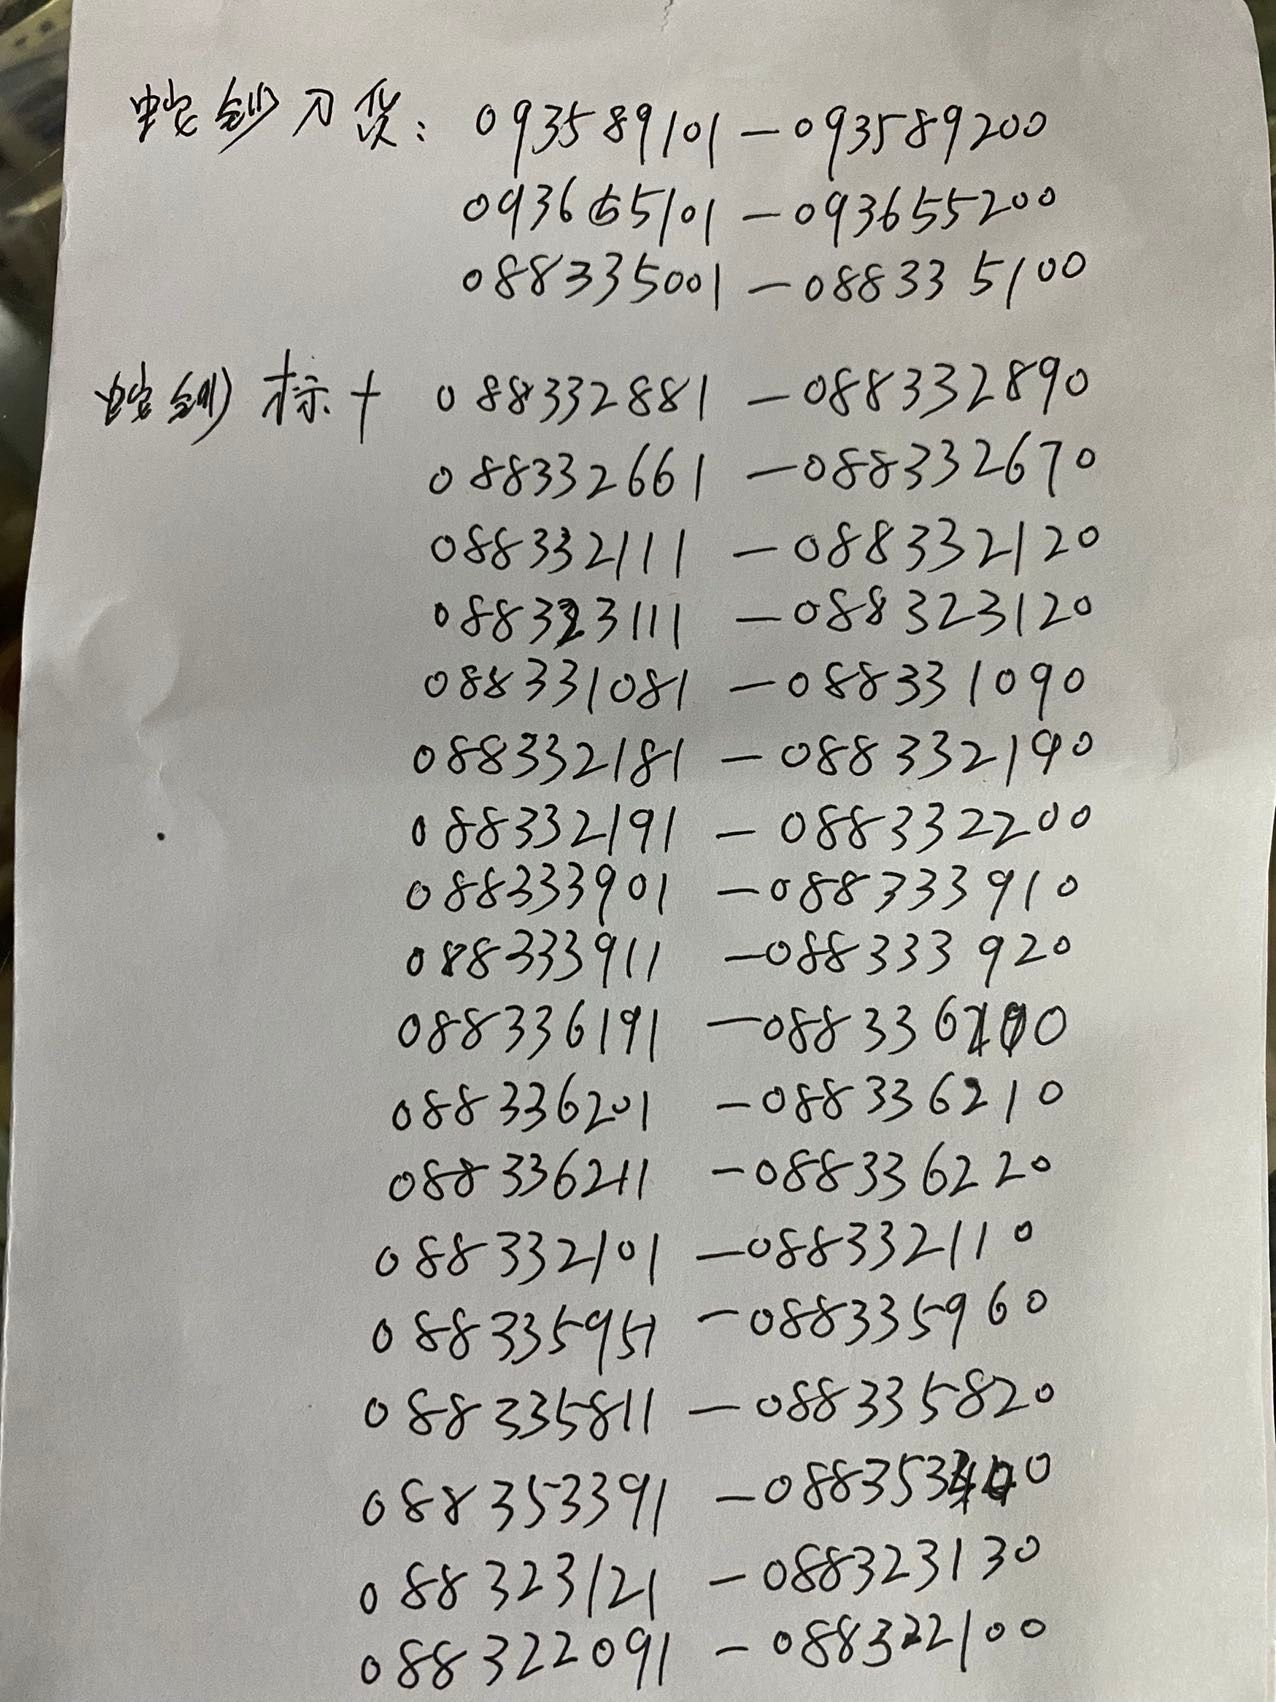 蛇钞刀货：093589101—093589200
093655101—093655200
088335001—088335100
蛇钞标十 088332881—088332890
088332661—088332670
088332111—088332120
088323111—088323120
088331081—088331090
088332181—088332190
088332191—088332200
088333901—088333910
088333911—088333920
088336191—088336200
088336201—088336210
088336211—088336220
088332101—088332110
088335951—088335960
088335811—088335820
088353391—088353400
088323121—088323130
088322091—088322100